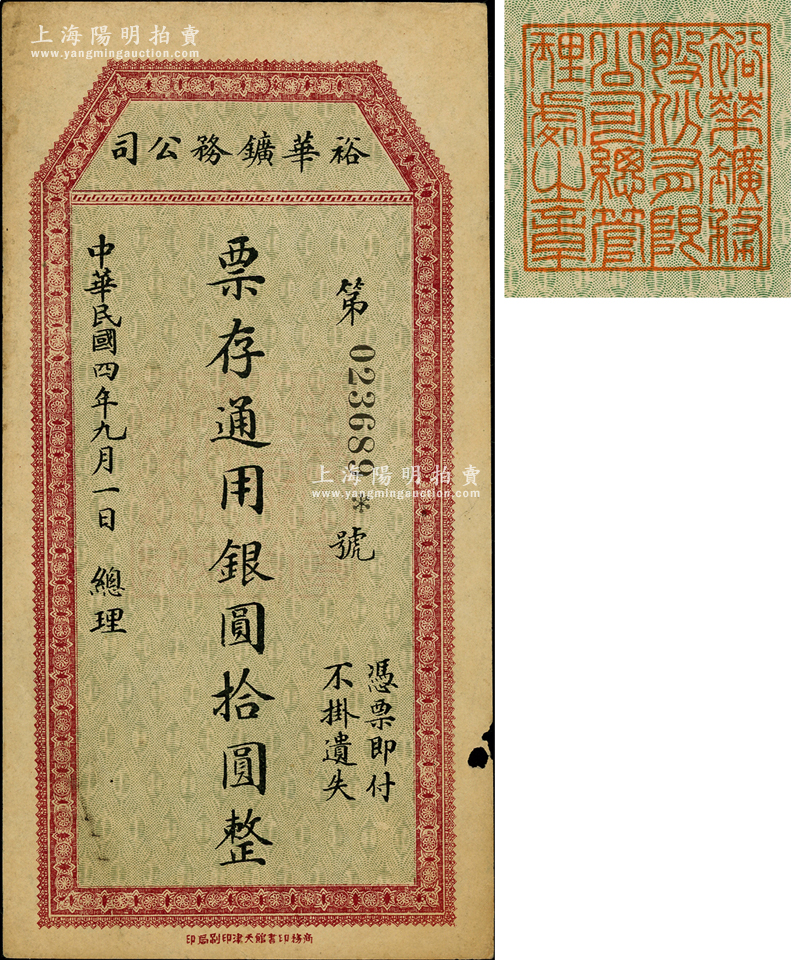 上海陽明拍賣
www.yangmingauction.com
裕華鑛務公司
第023689*號
憑票即付
不掛遺失
票存通用銀圓拾圓整
中華民國四年九月一日 總理
商務印書館天津印刷局印
上海陽明拍賣
www.yangmingauction.com
裕華鑛務
股份有限
公司總管
理處之章